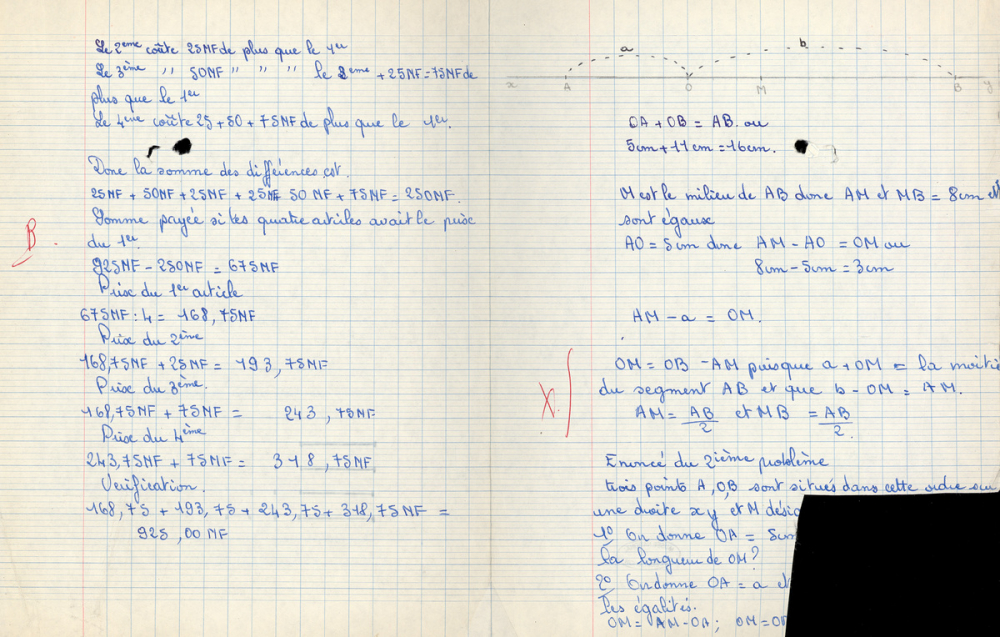 Le 2ème coûte 25NF de plus que le 1er
Le 3ème ,, 50NF " " " le 2ème + 25NF = 75NF de
plus que le 1er
Le 4ème coûte 25 + 50 + 75NF de plus que le 1er.
Donc la somme des différences est
25NF + 50NF + 25NF + 25NF 50 NF + 75NF = 250NF.
Somme payée si les quatre articles avait le prix
du 1er
B
925NF - 250NF = 675NF
Prix du 1er article
675NF : 4 = 168,75NF
Prix du 2ème
168,75NF + 25NF = 193,75NF
Prix du 3ème.
168,75NF + 75NF = 243,75NF
Prix du 4ème
243,75NF + 75NF = 318,75NF
Verification.
168,75 + 193,75 + 243,75 + 318,75NF =
925,00 NF
a b
x A O M B y
OA + OB = AB. ou
5cm + 11cm = 16cm.
M est le milieu de AB donc AM et MB = 8cm et
sont égaux
AO = 5cm donc AM - AO = OM ou
8cm - 5cm = 3cm
AM - a = OM.
OM = OB - AM puisque a + OM = la moitié
du segment AB et que b - OM = AM.
X
AM = AB/2 et MB = AB/2.
Enoncé du 2ième problème
trois points A, O, B sont situés dans cette ordre sur
une droite xy et M désig
1º On donne OA = 5cm
la longueur de OM?
2º On donne OA = a et
les égalités.
OM = AM - OA; OM = OB